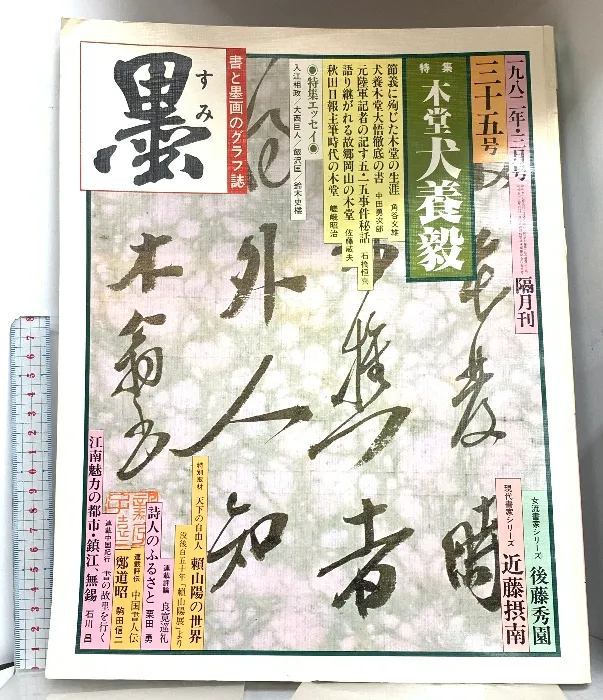 一九八二年・三月号
隔月刊
三十五号
特集
木堂犬養毅
節義に殉じた木堂の生涯 角谷文雄
犬養木堂大悟徹底の書 中田勇次郎
元陸軍記者の記す五・一五事件秘話 石橋恒喜
語り継がれる故郷岡山の木堂 佐藤威夫
秋田日報主筆時代の木堂 嵯峨昭治
●特集エッセイ●
入江相政/大西巨人/飯沢匡/鈴木史楼
書と墨画のグラフ誌
墨
すみ
時
者
外人知
木翁
女流書家シリーズ 後藤秀園
現代書家シリーズ 近藤摂南
特別取材 天下の自由人 頼山陽の世界
没後百五十年「頼山陽展」より
連載評論 良寛巡礼
詩人のふるさと 栗田勇
連載評伝 中国書人伝
鄭道昭 駒田信二
連載中国紀行 書の故里を行く
江南魅力の都市・鎮江、無錫 石川昌